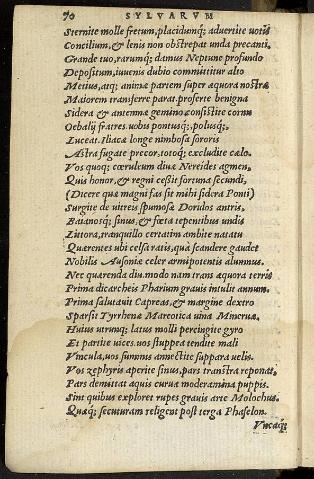 70 SYLVARVM
Sternite molle fretum, placidumq; aduertite uotis
Concilium, & lenis non obstrepat unda precanti.
Grande tuo, rarumq; damus Neptune profundo
Depositum, iuuenis dubio committitur alto
Metius, atq; animæ partem super æquora nostræ
Maiorem transferre parat. proferte benigna
Sidera & antennæ gemino consistite cornu
Oebalij fratres. uobis pontusq;, polusq;,
Luceat. Iliacæ longe nimbosa sororis
Astra fugate precor, totoq; excludite cælo.
Vos quoq; cœruleum diuæ Nereides agmen,
Quis honor, & regni cessit fortuna secundi,
(Dicere quæ magni fas sit mihi sidera Ponti)
Surgite de uitreis spumosæ Doridos antris,
Baianosq; sinus, & fœta tepentibus undis
Littora, tranquillo certatim ambite natatu
Quærentes ubi celsa ratis, quá scandere gaudet
Nobilis Ausoniæ celer armipotentis alumnus.
Nec quærenda diu. modo nam trans æquora terris
Prima dicarcheis Pharium grauis intulit annum.
Prima salutauit Capreas, & margine dextro
Sparsit Tyrrhenæ Mareotica uina Mineruæ.
Huius utrunq; latus molli percingite gyro
Et partitæ uices. uos stuppea tendite mali
Vincula, uos summis annectite suppara uelis.
Vos zephyris aperite sinus, pars transtra reponat,
Pars demittat aquis curuæ moderamina puppis.
Sint quibus exploret rupes grauis arte Molochus.
Quæq; secuturam religent post terga Phaselon.
Vncaq;